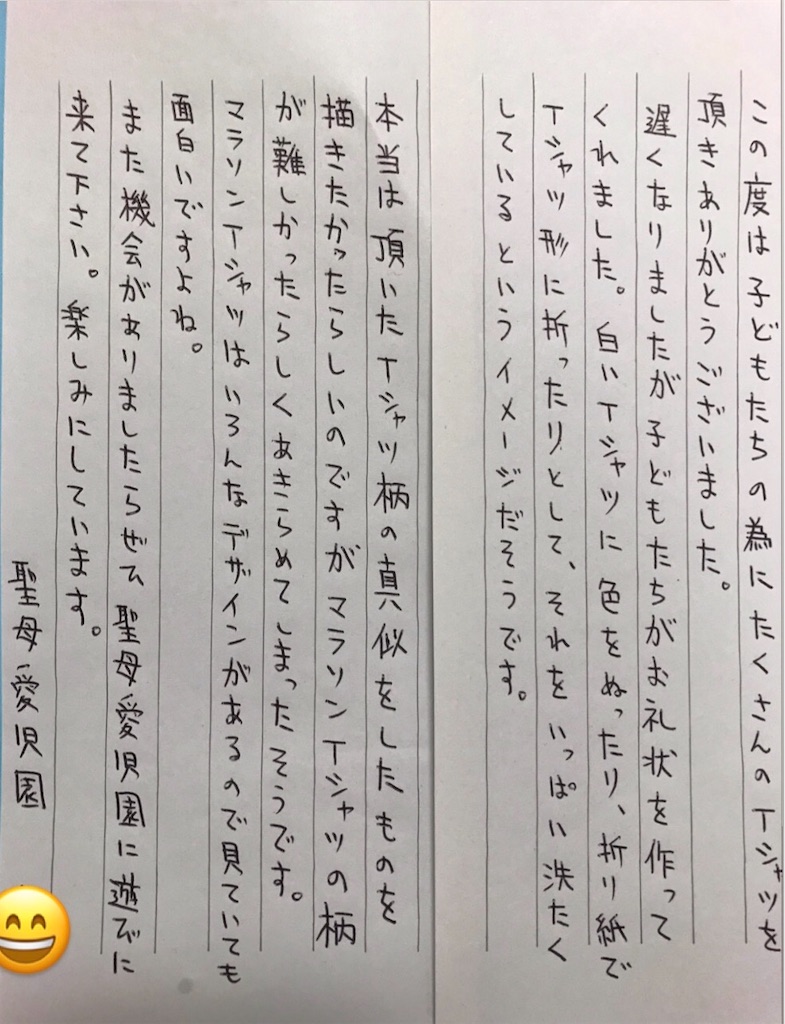 この度は子どもたちの為にたくさんのTシャツを
頂きありがとうございました。
遅くなりましたが子どもたちがお礼状を作って
くれました。白いTシャツに色をぬったり、折り紙で
Tシャツ形に折ったりとして、それをいっぱい洗たく
しているというイメージだそうです。
本当は頂いたTシャツ柄の真似をしたものを
描きたかったらしいのですがマラソンTシャツの柄
が難しかったらしくあきらめてしまったそうです。
マラソンTシャツはいろんなデザインがあるので見ていても
面白いですよね。
また機会がありましたらぜひ聖母愛児園に遊びに
来て下さい。楽しみにしています。
聖母愛児園